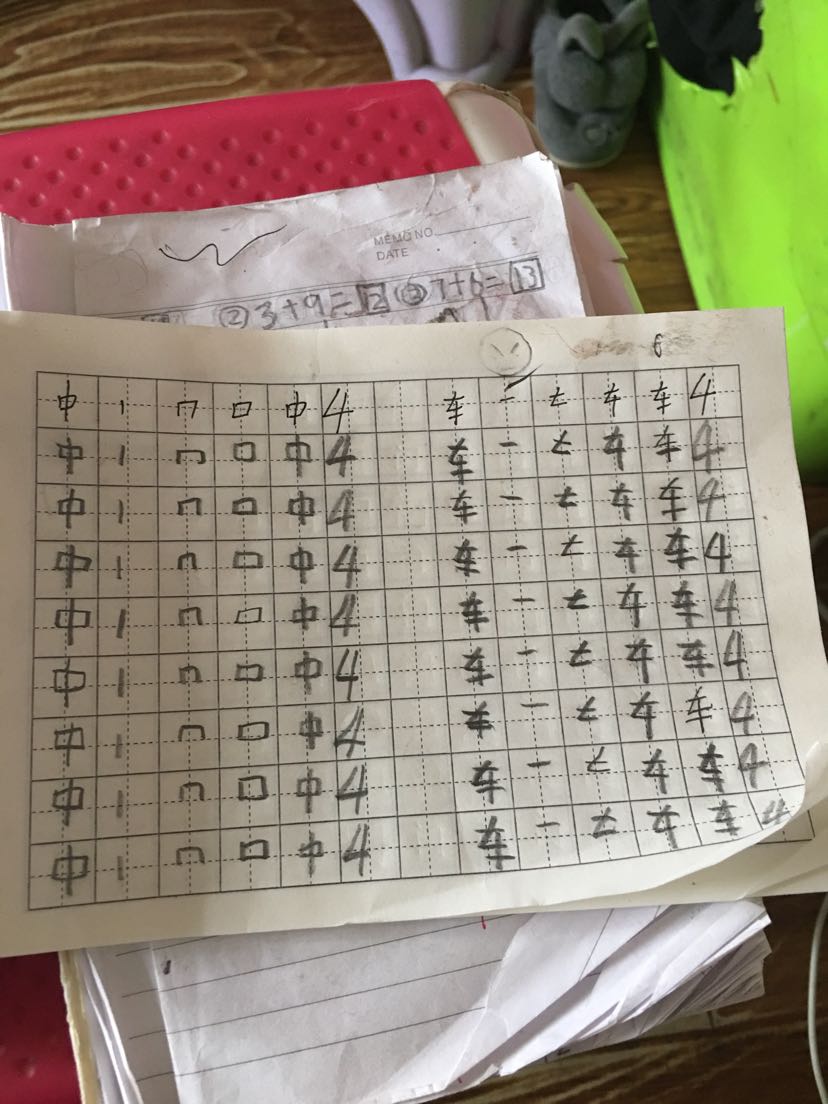 MEMO NO.
DATE
② 3+9=12 ③ 7+6=13
6
中 丨 冂 口 中 4 车 一 七 车 车 4
中 丨 冂 口 中 4 车 一 七 车 车 4
中 丨 冂 口 中 4 车 一 七 车 车 4
中 丨 冂 口 中 4 车 一 七 车 车 4
中 丨 冂 口 中 4 车 一 七 车 车 4
中 丨 冂 口 中 4 车 一 七 车 车 4
中 丨 冂 口 中 4 车 一 七 车 车 4
中 丨 冂 口 中 4 车 一 七 车 车 4
中 丨 冂 口 中 4 车 一 七 车 车 4